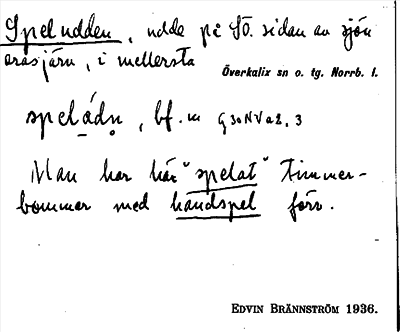 Spel udden, udde på SO. sidan av sjön
orasjärn, i mellersta
Överkalix sn o. tg. Norrb. l.
spelạ́dn̥, bf. m g30NVa2,3
Man har här "spelat" timmer-
bommar med handspel förr.
EDVIN BRÄNNSTRÖM 1936.